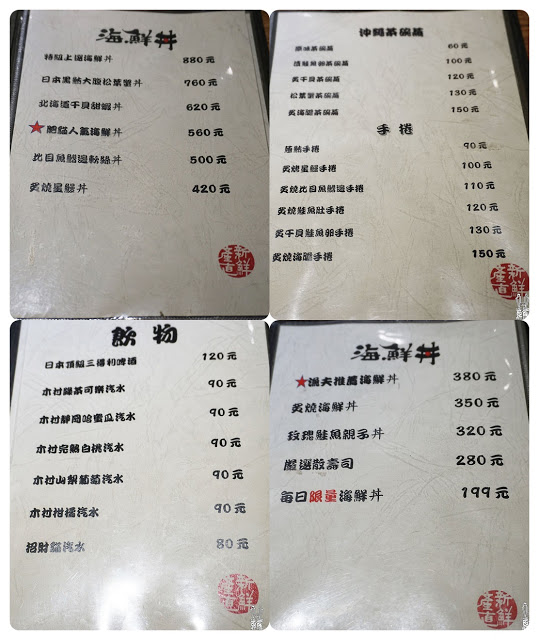 海鮮丼
特級上選海鮮丼 880元
日本黑鮪大腹松葉蟹丼 760元
北海道干貝甜蝦丼 620元
★ 鬍鬚人氣海鮮丼 560元
比目魚鰭邊粉絲丼 500元
炙燒星鰻丼 420元
新鮮
產直
沖繩茶碗蒸
原味茶碗蒸 60元
漬鮭魚卵茶碗蒸 100元
炙干貝茶碗蒸 120元
松葉蟹茶碗蒸 130元
炙海膽茶碗蒸 150元
手捲
極鮪手捲 90元
炙燒星鰻手捲 100元
炙燒比目魚鰭邊手捲 110元
炙燒鮭魚肚手捲 120元
炙干貝鮭魚卵手捲 130元
炙燒海膽手捲 150元
新鮮
產直
飲物
日本頂級三得利啤酒 120元
木村綠茶可樂汽水 90元
木村靜岡哈蜜瓜汽水 90元
木村完熟白桃汽水 90元
木村山梨葡萄汽水 90元
木村柑橘汽水 90元
招財貓汽水 80元
新鮮
產直
海鮮丼
★漁夫推薦海鮮丼 380元
炙燒海鮮丼 350元
玫瑰鮭魚親子丼 320元
嚴選散壽司 280元
每日限量海鮮丼 199元
新鮮
產直